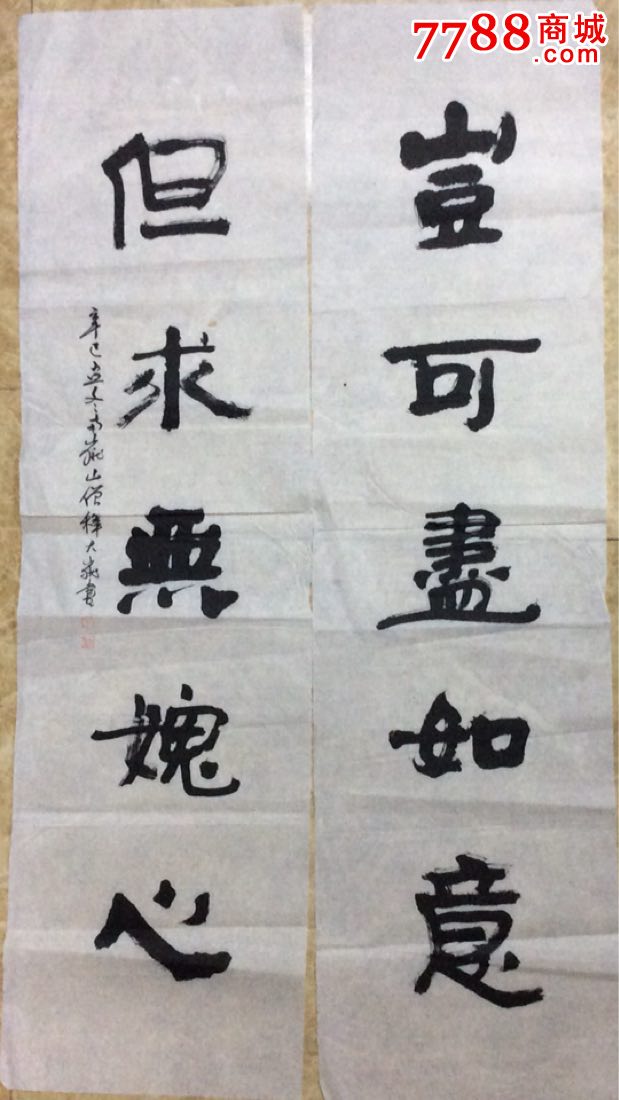 7788商城
.com
豈可盡如意
但求無媿心
辛巳立冬南嶽山僧釋大嶽書